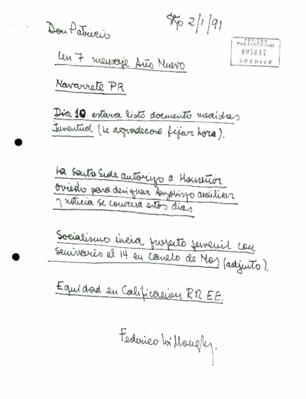 Stgo 2/1/91
Don Patricio
ARCHIVO
Un 7 mensaje Año Nuevo
Navarrete PR
Día 10 estara listo documento medidas
Juventud (le agradeceré fijar hora).
La Santa Sede autorizo a Monseñor
Oviedo para designar auxiliar
y noticia se conocerá estos dias
Socialismo inicia proyecto juvenil con
seminario el 14 en Canelo de Nos (adjunto).
Equidad en Calificacion RR EE.
Federico Willoughby